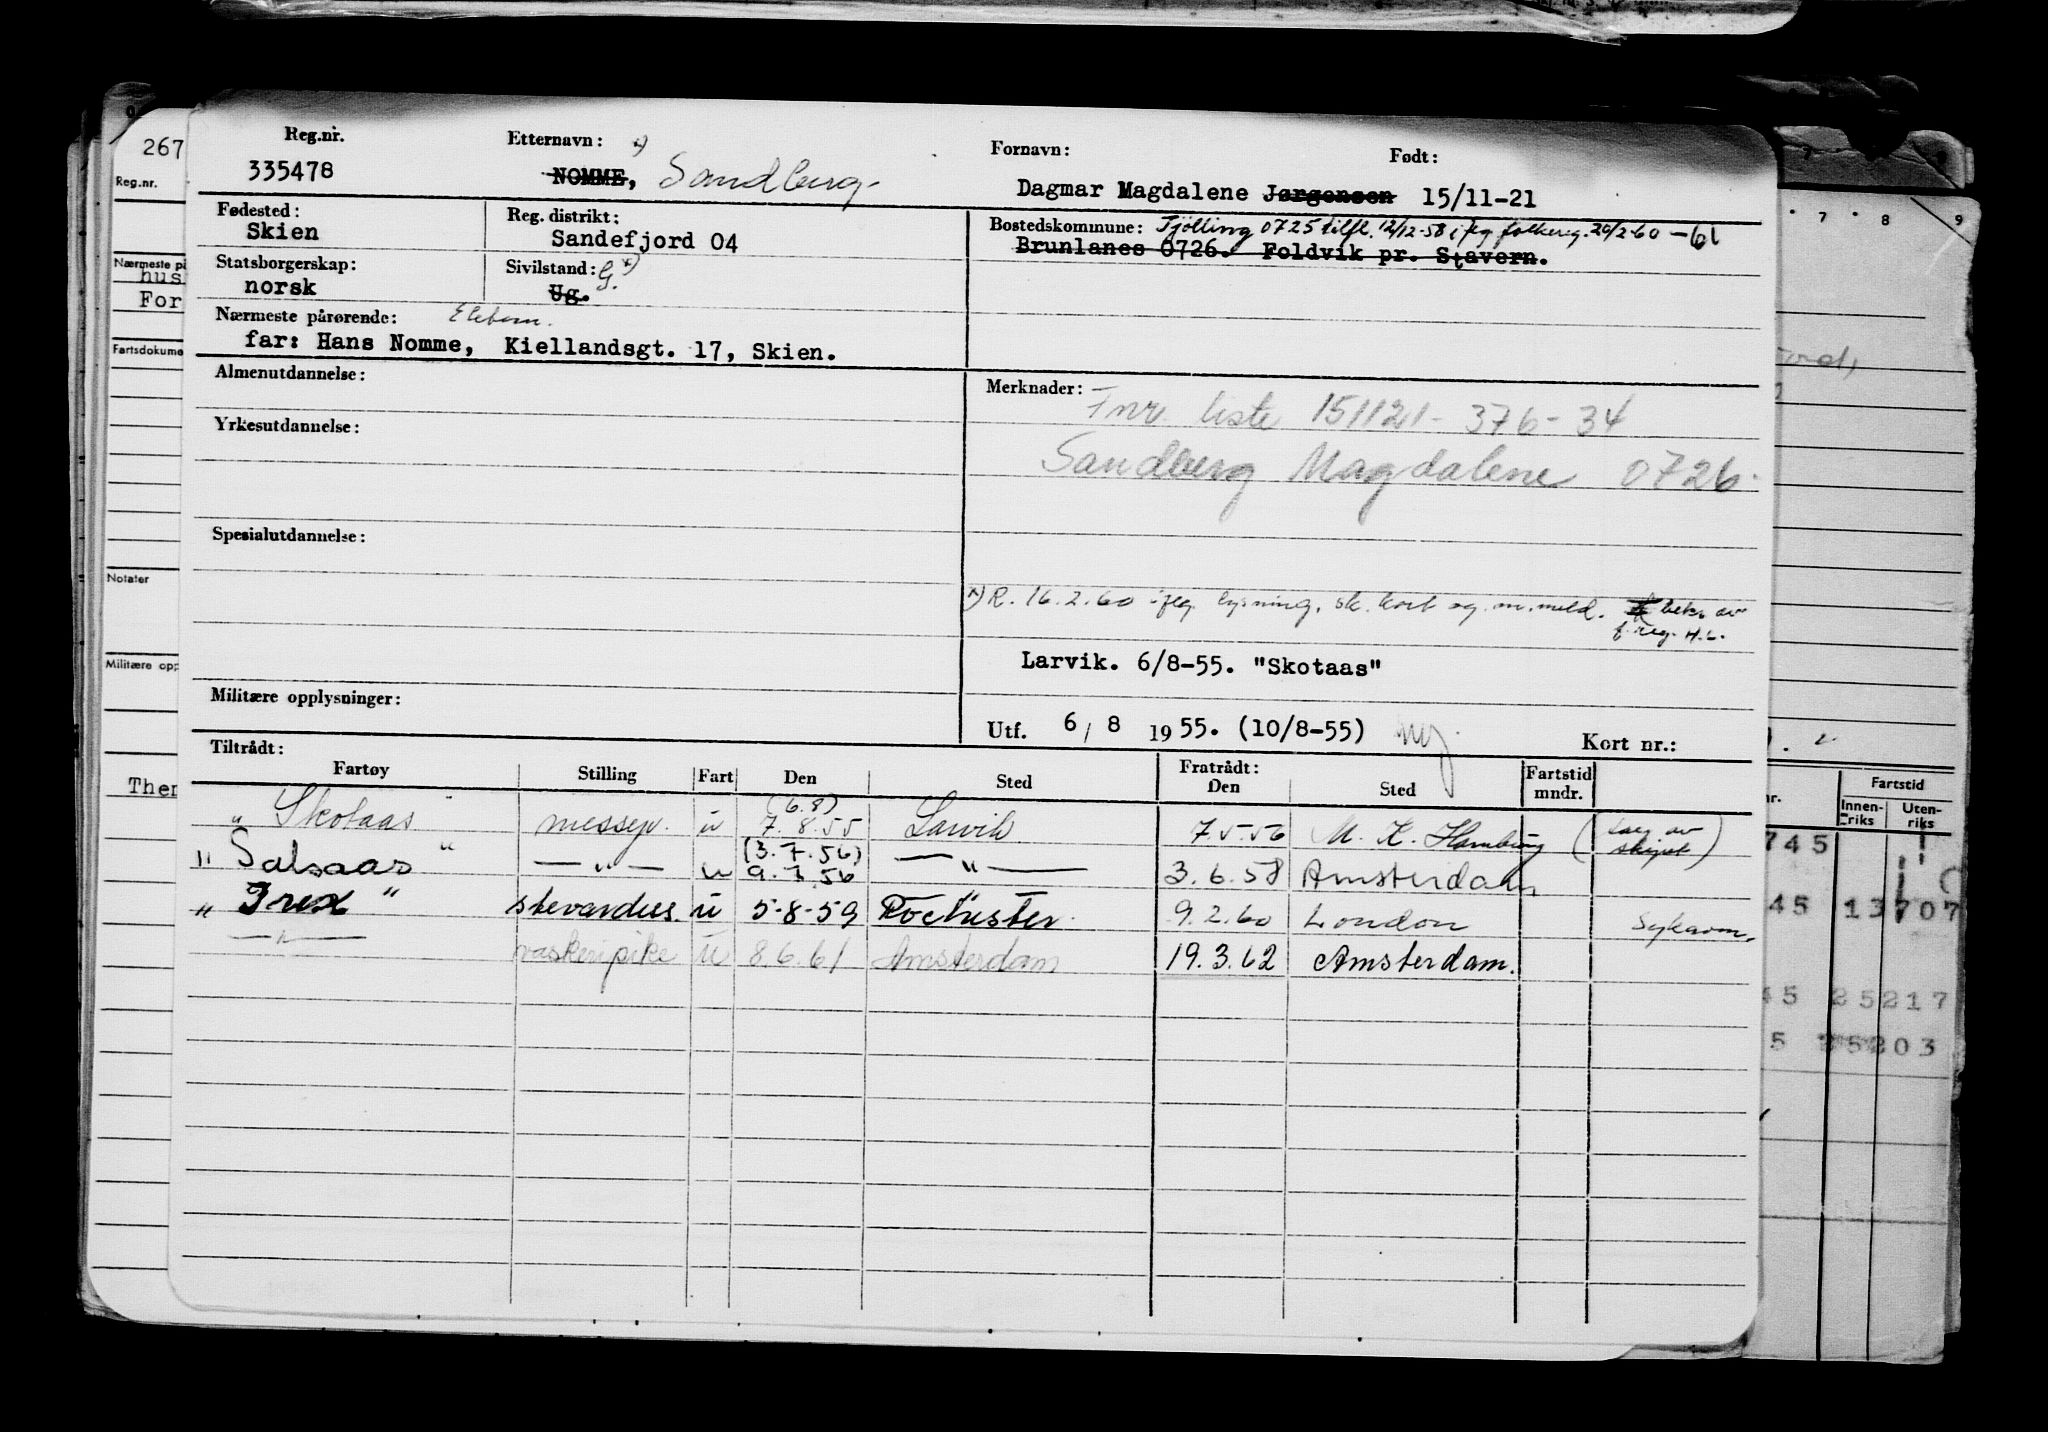 Reg.nr.
335478
Etternavn: x)
NOMME, Sandberg
Fornavn:
Dagmar Magdalene Jørgensen
Født:
15/11-21
Fødested:
Skien
Reg. distrikt:
Sandefjord 04
Bostedskommune: Tjölling 0725 tilfl. 12/12-58 ifg folkereg. 20/2-60 -61
Brunlanes 0726. Foldvik pr. Stavern.
Statsborgerskap:
norsk
Sivilstand: G. x)
Ug.
Nærmeste pårørende:
far: Hans Nomme, Kiellandsgt. 17, Skien.
Almenutdannelse:
Merknader:
Fnr. liste 151121-376-34
Sandberg Magdalene 0726
Yrkesutdannelse:
Spesialutdannelse:
x) R. 16.2.60 ifg. lysning, sk. kort og m. meld. bekr av
f. reg. H.L.
Larvik. 6/8-55. "Skotaas"
Militære opplysninger:
Utf. 6/8 1955. (10/8-55)
Kort nr.:
Tiltrådt:
Fartøy Stilling Fart Den Sted
Fratrådt:
Den Sted
Fartstid
mndr.
" Skotaas " messep. u (6.8) 7.8.55 Larvik 7.5.56 M. K. Hamburg ( av skipet)
" Salsaas " — " — u (3.7.56) 9.7.56 — " — 3.6.58 Amsterdam
" Irex " stevardess. u 5-8-59 Rochester 9.2.60 London Sykdom.
— " — vaskeripike u 8.6.61 Amsterdam 19.3.62 Amsterdam.
267
Reg.nr.
Nærmeste på
hus
For
Fartsdokume
Notater
Militære opp
Ther
7 8 9
Fartstid
Innen-
riks
Uten-
riks
745
45 13707
45 25217
5 25203